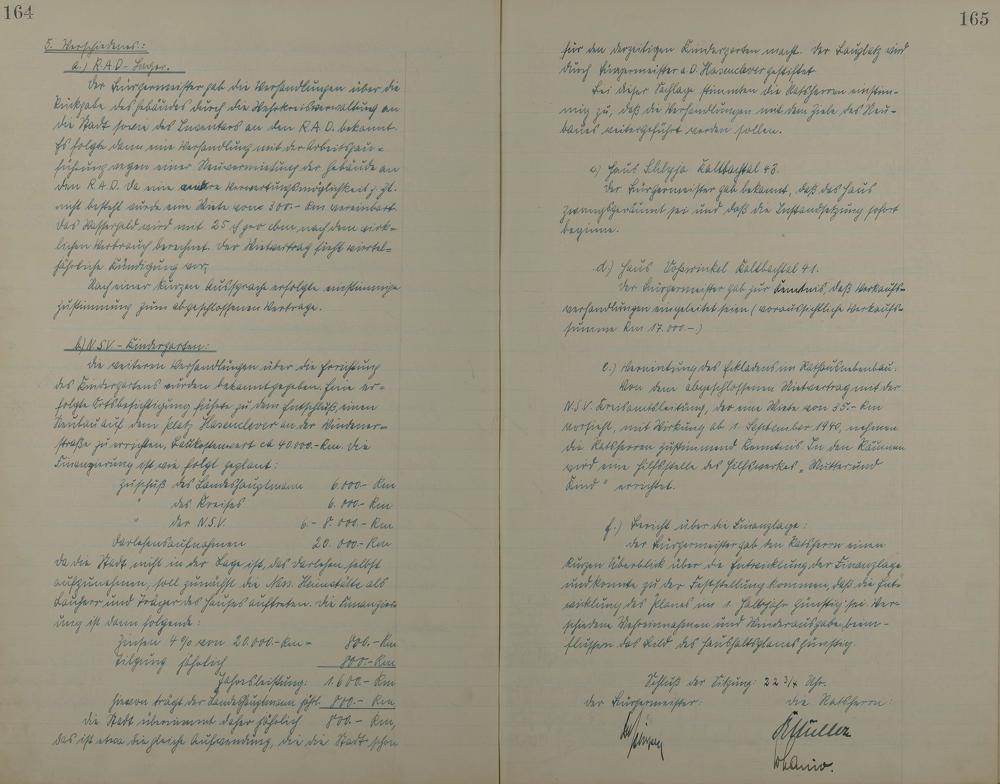 164
5. Verschiedenes:
a.) R.A.D.-Lager.
Der Bürgermeister gab die Verhandlungen über die
Rückgabe des Gebäudes durch die Wehrkreisverwaltung an
die Stadt sowie des Inventars an den R.A.D. bekannt.
Es folgte dann eine Verhandlung mit der Arbeitsgau-
führung wegen einer Neuvermietung der Gebäude an
den R.A.D. Da eine andere Verwertungsmöglichkeit z. Zt.
nicht besteht wurde eine Miete von 300.- Rm vereinbart.
Das Wassergeld wird mit 25 ₰ pro cbm, nach dem wirk-
lichen Verbrauch berechnet. Der Mietvertrag sieht viertel-
jährliche Kündigung vor.
Nach einer kurzen Aussprache erfolgte einstimmige
Zustimmung zum abgeschlossenen Vertrage.
b) N.S.V.-Kindergarten:
Die weiteren Verhandlungen über die Errichtung
des Kindergartens wurden bekanntgegeben. Eine er-
folgte Ortsbesichtigung führte zu dem Entschluß, einen
Neubau auf dem Platz Hasenclever an der
straße zu errichten, Baukostenwert ca 40.000.-Rm. Die
Finanzierung ist wie folgt geplant:
Zuschuß des Landeshauptmann 6.000.- Rm
" des Kreises 6.000.- Rm
" der N.S.V. 6.- 8.000.- Rm
Darlehensaufnahmen 20.000.- Rm
Da die Stadt nicht in der Lage ist, das Darlehen selbst
aufzunehmen, soll zunächst die Nass. Heimstätte als
Bauherr und Träger des Hauses auftreten. Die Finanzier-
ung ist dann folgende:
Zinsen 4 % von 20.000.-Rm- 800.-Rm
Tilgung jährlich 800.-Rm
Jahresleistung: 1.600.-Rm
hiervon trägt der Landeshauptmann jährl. 800.- Rm
die Stadt übernimmt daher jährlich 800.- Rm,
das ist etwa die gleiche Aufwendung, die die Stadt schon
165
für den derzeitigen Kindergarten macht. Der Bauplatz wird
durch Bürgermeister a.D. Hasenclever gestiftet.
Bei dieser Sachlage stimmten die Ratsherren einstim-
mig zu, daß die Verhandlungen mit dem Ziele des Neu-
baues weitergeführt werden sollen.
c) Haus Kaltbachtal 43.
Der Bürgermeister gab bekannt, daß das Haus
zwangsgeräumt sei und daß die Instandsetzung sofort
beginne.
d.) Haus Voßwinkel Kaltbachtal 41.
Der Bürgermeister gab zur Kenntnis, daß Verkaufs-
verhandlungen eingeleitet seien (voraussichtliche Verkaufs-
summe Rm 17.000.-)
e.) Vermietung des Eckladens im Rathausnebenbau.
Von dem abgeschlossenen Mietvertrag mit der
N.S.V. Kreisamtsleitung, der eine Miete von 35.- Rm
vorsieht, mit Wirkung ab 1. September 1940, nehmen
die Ratsherren zustimmend Kenntnis. In den Räumen
wird eine Hilfsstelle des Hilfswerkes „Mutter und
Kind" errichtet.
f.) Bericht über die Finanzlage:
Der Bürgermeister gab den Ratsherrn einen
kurzen Überblick über die Entwicklung der Finanzlage
und konnte zu der Feststellung kommen, daß die Ent-
wicklung des Planes im 1. Halbjahr günstig sei. Ver-
schiedene Mehreinnahmen und Minderausgaben beein-
flussen das Bild des Haushaltsplanes günstig.
Schluß der Sitzung: 22 3/4 Uhr.
der Bürgermeister: die Ratsherrn:
Müller